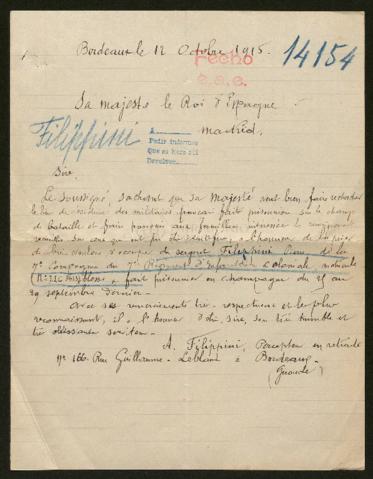 Bordeaux le 12 Octobre 1915.
Fecho
14154
Sa majesté le Roi d'Espagne
Madrid.
Filippini
A
Pedir informes
Devolver
Sire,
Le soussigné, sachant que Sa Majesté veut bien faire rechercher
le lieu de résidence des militaires français faits prisonniers sur le champ
de bataille et faire parvenir aux familles les
recueillis sur ceux qui ont pu être identifiés, a l'honneur de le prier
de bien vouloir s'occuper du sergent Filippini de la
7e Compagnie du Régiment d'Infanterie coloniale, matricule
fait prisonnier en Champagne du 25 au
29 septembre dernier.
Avec ses remerciements très respectueux et les plus
reconnaissants, il a l'honneur d'être, Sire, son très humble et
très obéissant serviteur.
A. Filippini, Percepteur en retraite
nº 166 Rue Guillaume-Leblanc à Bordeaux
(Gironde)